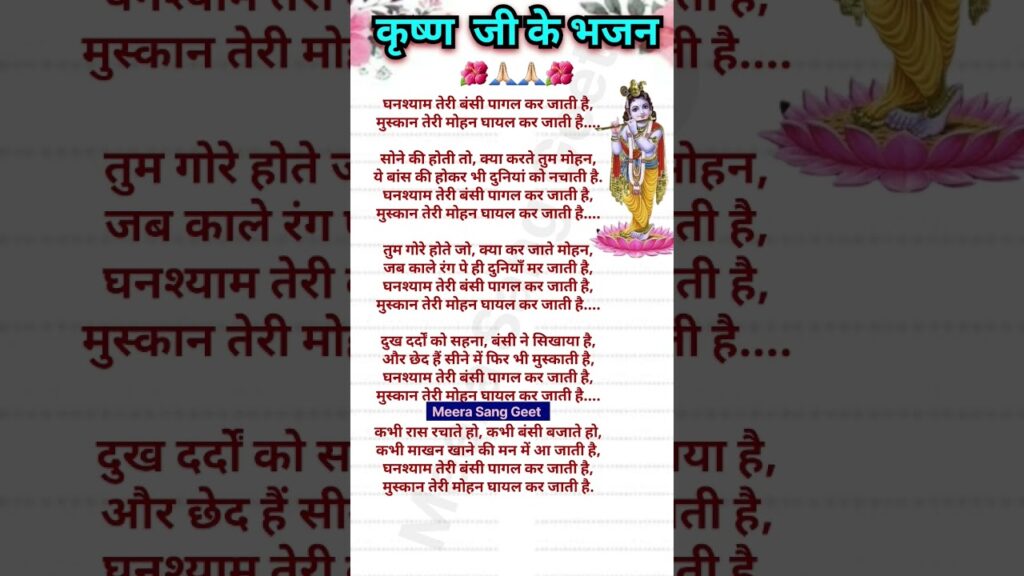 कृष्ण जी के भजन
घनश्याम तेरी बंसी पागल कर जाती है,
मुस्कान तेरी मोहन घायल कर जाती है....
सोने की होती तो, क्या करते तुम मोहन,
ये बांस की होकर भी दुनियां को नचाती है.
घनश्याम तेरी बंसी पागल कर जाती है,
मुस्कान तेरी मोहन घायल कर जाती है....
तुम गोरे होते जो, क्या कर जाते मोहन,
जब काले रंग पे ही दुनियाँ मर जाती है,
घनश्याम तेरी बंसी पागल कर जाती है,
मुस्कान तेरी मोहन घायल कर जाती है....
दुख दर्दों को सहना, बंसी ने सिखाया है,
और छेद हैं सीने में फिर भी मुस्काती है,
घनश्याम तेरी बंसी पागल कर जाती है,
मुस्कान तेरी मोहन घायल कर जाती है....
Meera Sang Geet
कभी रास रचाते हो, कभी बंसी बजाते हो,
कभी माखन खाने की मन में आ जाती है,
घनश्याम तेरी बंसी पागल कर जाती है,
मुस्कान तेरी मोहन घायल कर जाती है.